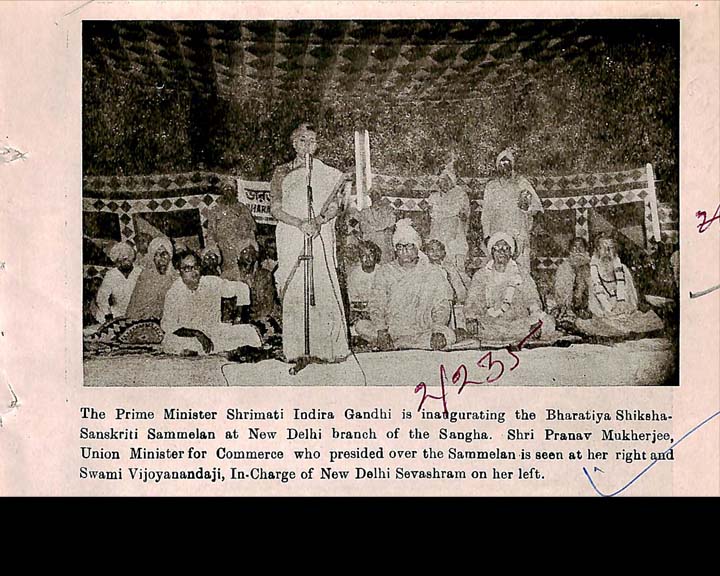 ভারত
BHARA
2/235
The Prime Minister Shrimati Indira Gandhi is inaugurating the Bharatiya Shiksha-
Sanskriti Sammelan at New Delhi branch of the Sangha. Shri Pranav Mukherjee,
Union Minister for Commerce who presided over the Sammelan is seen at her right and
Swami Vijoyanandaji, In-Charge of New Delhi Sevashram on her left.